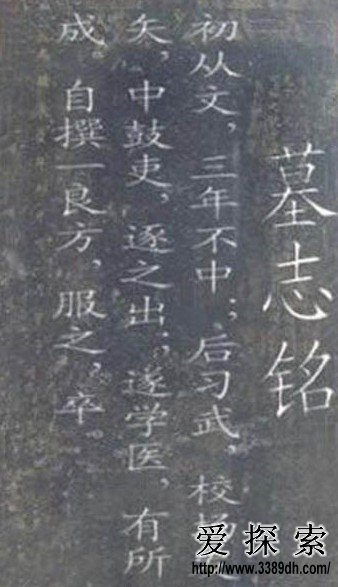 墓志铭
初从文，三年不中；后习武，校场
矢，中鼓吏，逐之出；遂学医，有所
成。自撰一良方，服之，卒。
爱探索
http://www.3389dh.com/